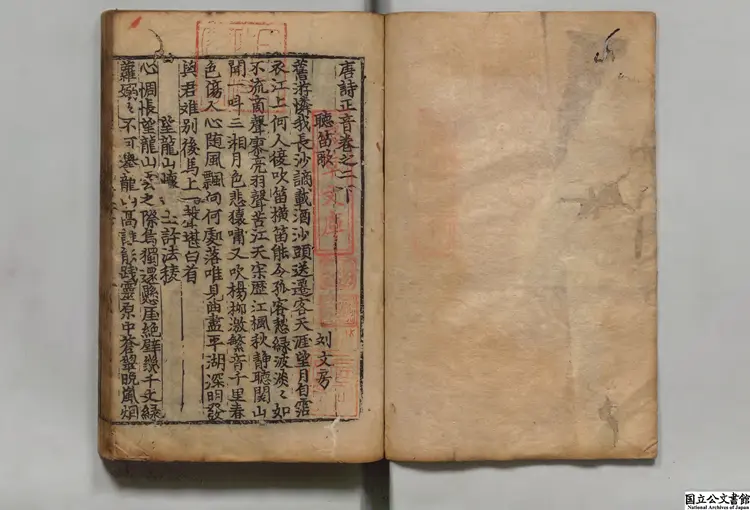 唐詩正音卷之二下
聽笛歌 刘文房
舊游憐我長沙謫載酒沙頭送遷客天涯望月自霑
衣江上何人復吹笛橫笛能令孤客愁綠波淡〻如
不流商聲寥亮羽聲苦江天寂歷江楓秋靜聽関山
聞一呌三湘月色悲猿嘯又吹楊柳激繁音千里春
色傷人心随風飄向何處落唯見曲盡平湖深明發
與君难別後馬上一聲堪白首
望龍山懷士許法稜
心惆悵望龍山雲之際鳥獨還懸崖絶壁幾千丈緑
蘿嫋〻不可攀龍山高誰能踐靈原中蒼翠晚嵐烟
国立公文書館
National Archives of Japan